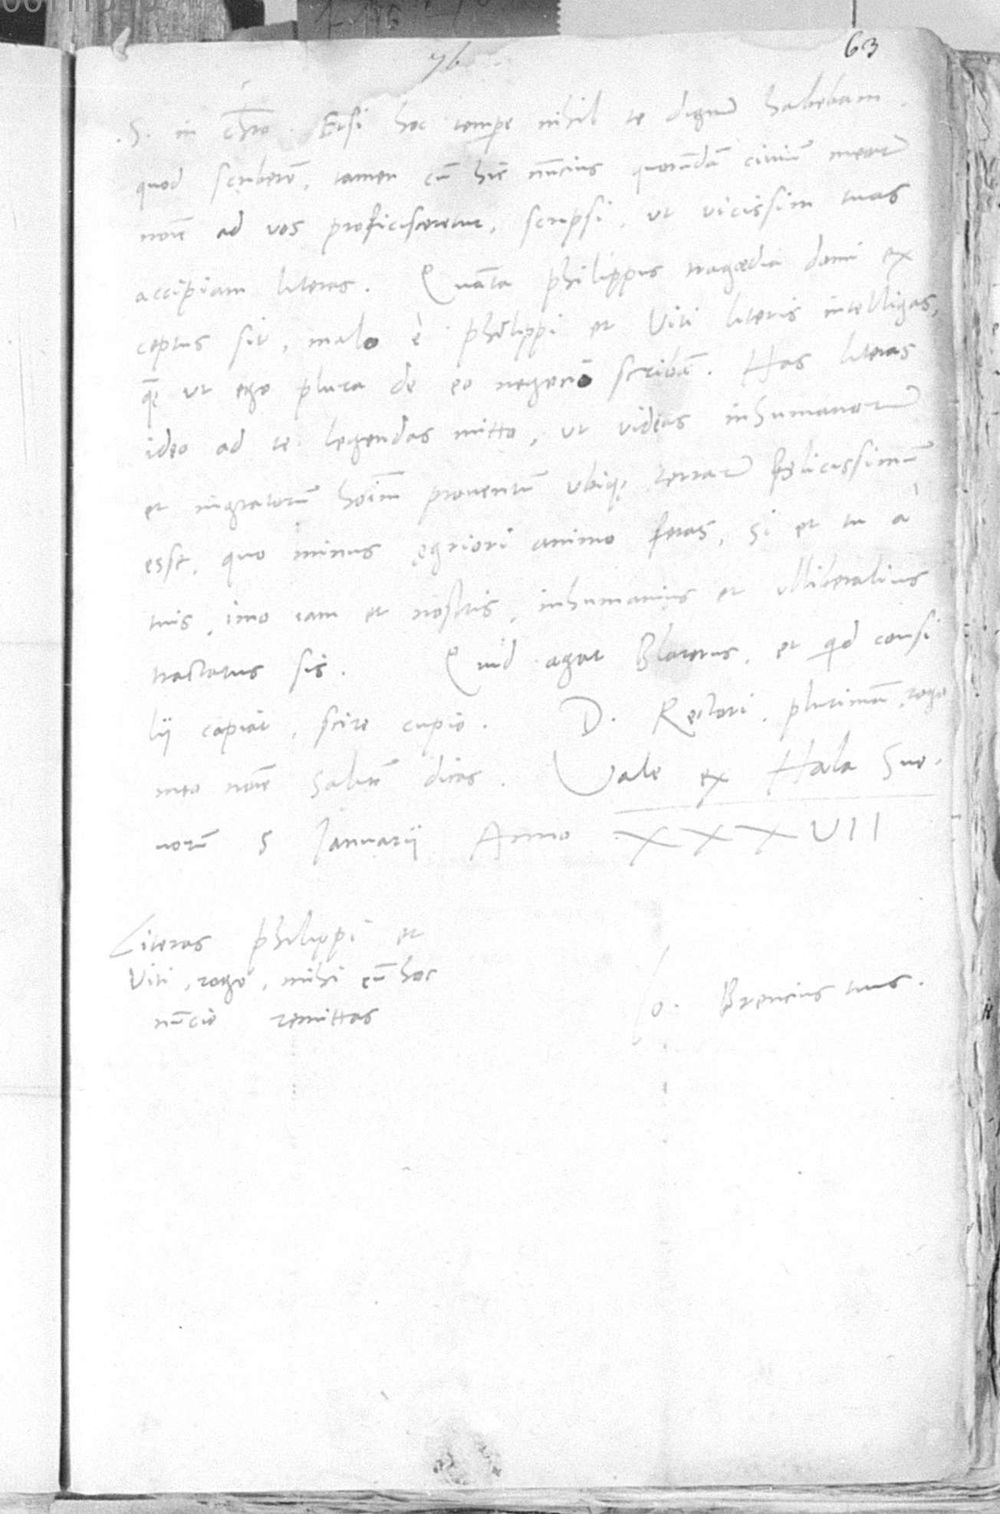 63
76
.S. in Chro. Etsi hoc tempe nihil te dignū habebam
quod scriberē, tamen cū hic nūcius quorūdā civiū meorū
noīe ad vos proficisceretur, scripsi, ut vicissim tuas
accipiam literas. Quāta philippus tragœdia domi ex
ceptus sit, malo è philippi et Viti literis intelligas,
q̄ ut ego plura de eo negocio scribā. Has literas
ideo ad te legendas mitto, ut videas inhumanorū
et ingratorū hoīm proventū ubiq; terrarū fęlicissimū
esse, quo minus ęgriori animo feras, si et tu à
tuis, imo iam et nostris, inhumanius et illiberalius
tractatus sis. Quid agat Blarerus, et qd consi
lii capiat, scire cupio. D. Rectori, plurimā, rogo
meo noīe salutē dicas. Vale ex Hala Sue-
vorū 5 Januarii Anno XXXVII
Literas philippi et
Viti, rogo, mihi cū hoc
nūcio remittas
Jo. Brencius tuus.